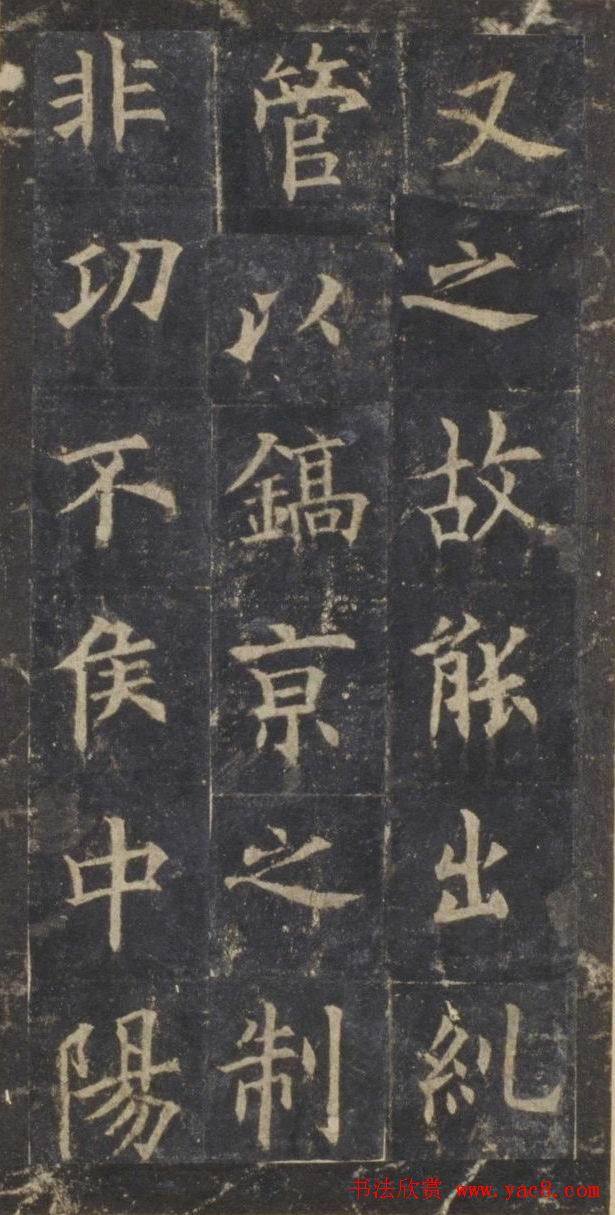 又之故能出糺
管以鎬京之制
非功不侯中陽
书法欣赏 www.yac8.com